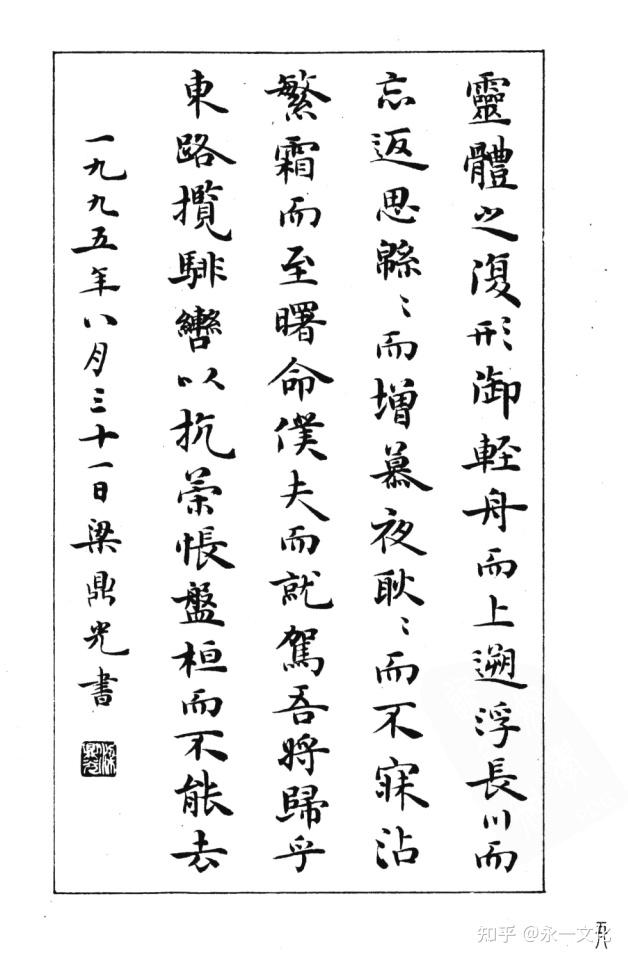 靈體之復形御輕舟而上遡浮長川而
忘返思緜〻而增慕夜耿〻而不寐沾
繁霜而至曙命僕夫而就駕吾將歸乎
東路攬騑轡以抗策悵盤桓而不能去
一九九五年八月三十一日梁鼎光書
五八
知乎 @永一文化